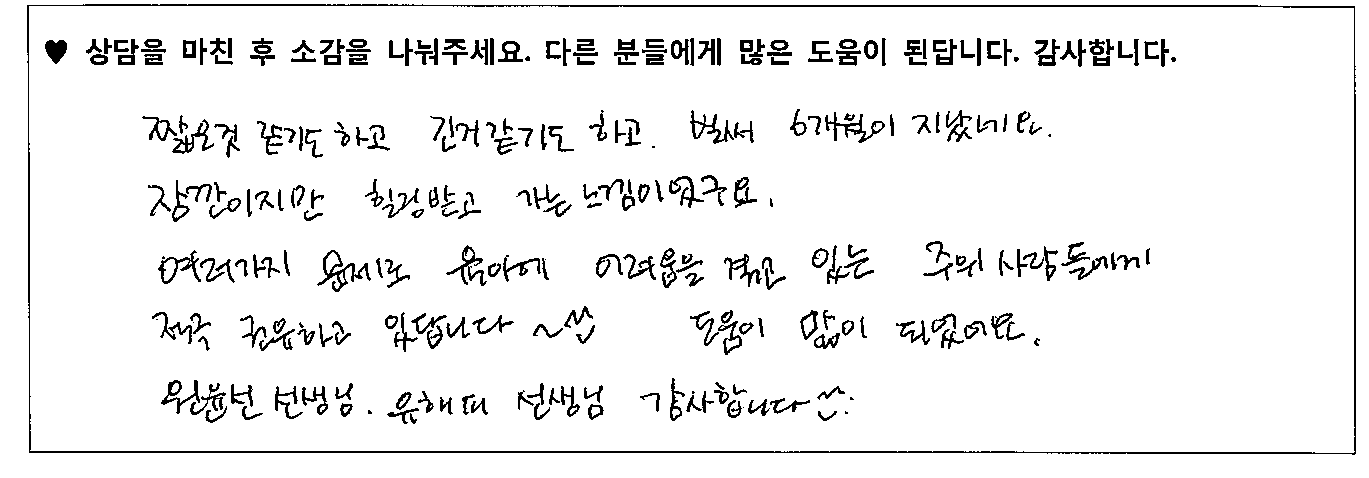 ♥ 상담을 마친 후 소감을 나눠주세요. 다른 분들에게 많은 도움이 된답니다. 감사합니다.
짧은것 같기도 하고 긴거같기도 하고. 벌써 6개월이 지났네요.
잠깐이지만 힐링받고 가는 느낌이었구요.
여러가지 문제로 육아에 어려움을 겪고 있는 주위 사람들에게
적극 권유하고 있답니다 ~^^ 도움이 많이 되었어요.
선생님. 선생님 감사합니다 ^^.